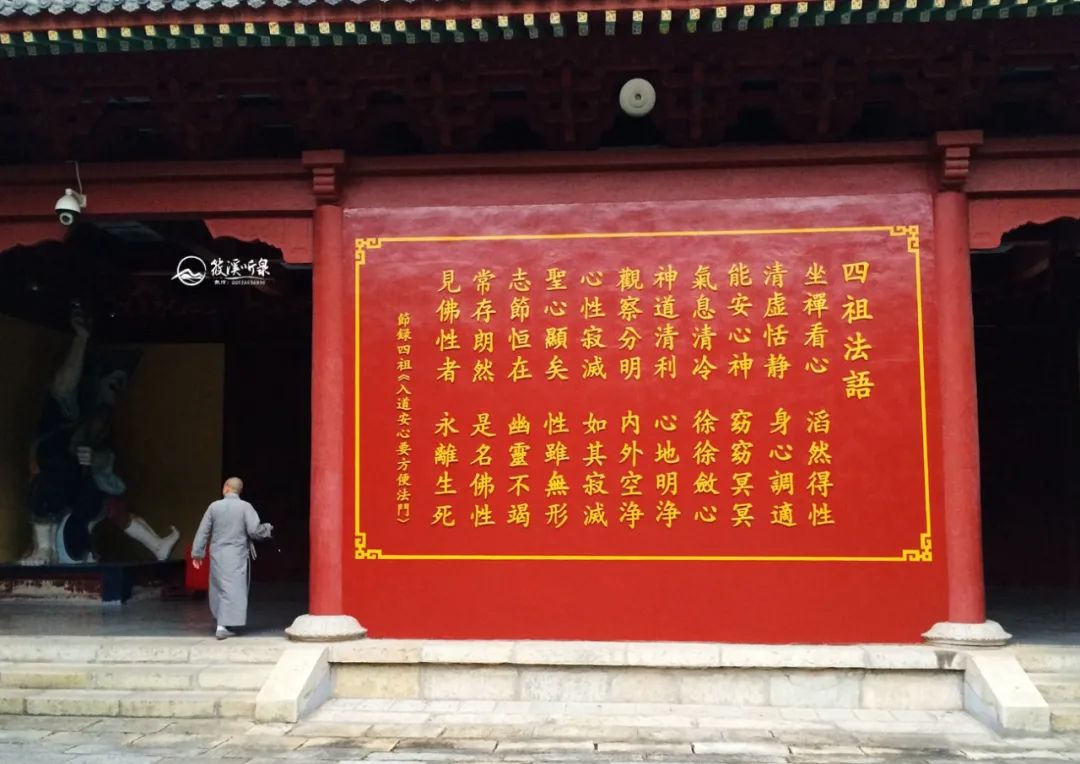 四祖法語
坐禪看心 滔然得性
清虛恬静 身心調適
能安心神 窈窈冥冥
氣息清冷 徐徐斂心
神道清利 心地明浄
觀察分明 内外空浄
心性寂滅 如其寂滅
聖心顯矣 性雖無形
志節恒在 幽靈不竭
常存朗然 是名佛性
見佛性者 永離生死
節録四祖《入道安心要方便法門》
筱溪听泉